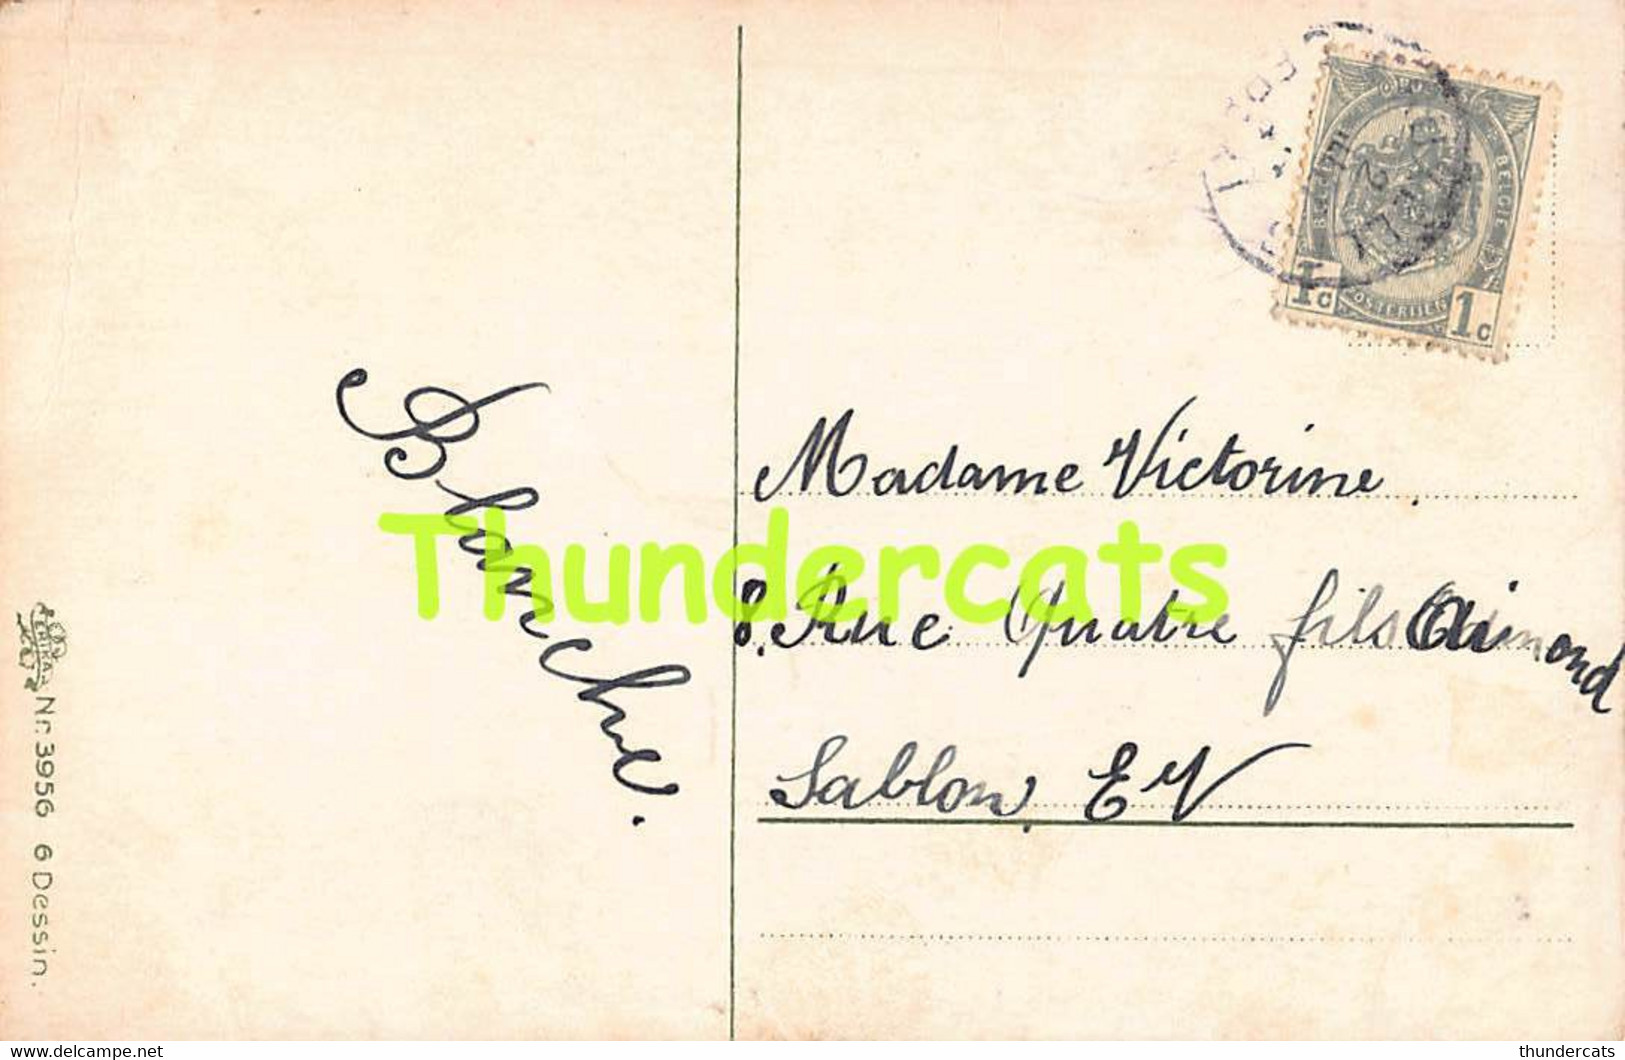 Blanche.
Madame Victorine.
8. Rue Quatre fils Aimond
Sablon, EV
BELGIQUE
BELGIE
POSTERIJEN
1c
1c
ERIKA
Nr. 3956 6 Dessin.
Thundercats
www.delcampe.net
thundercats